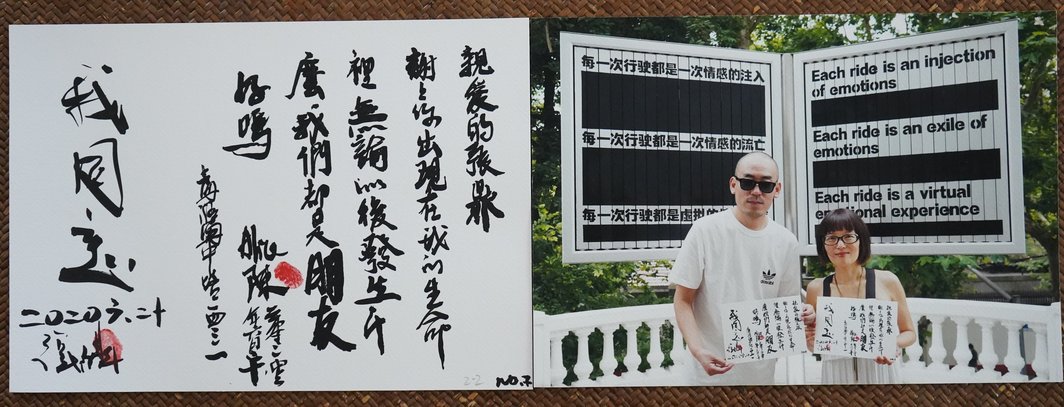 親愛的張鼎
謝々你出現在我的生命
裡無論以後發生什
麼我們都是朋友
好嗎
我同意
二〇二〇六、二十
張鼎
每一次行驶都是一次情感的注入
每一次行驶都是一次情感的流亡
每一次行驶都是虚拟的
Each ride is an injection
of emotions
Each ride is an exile of
emotions
Each ride is a virtual
emotional experience
adidas